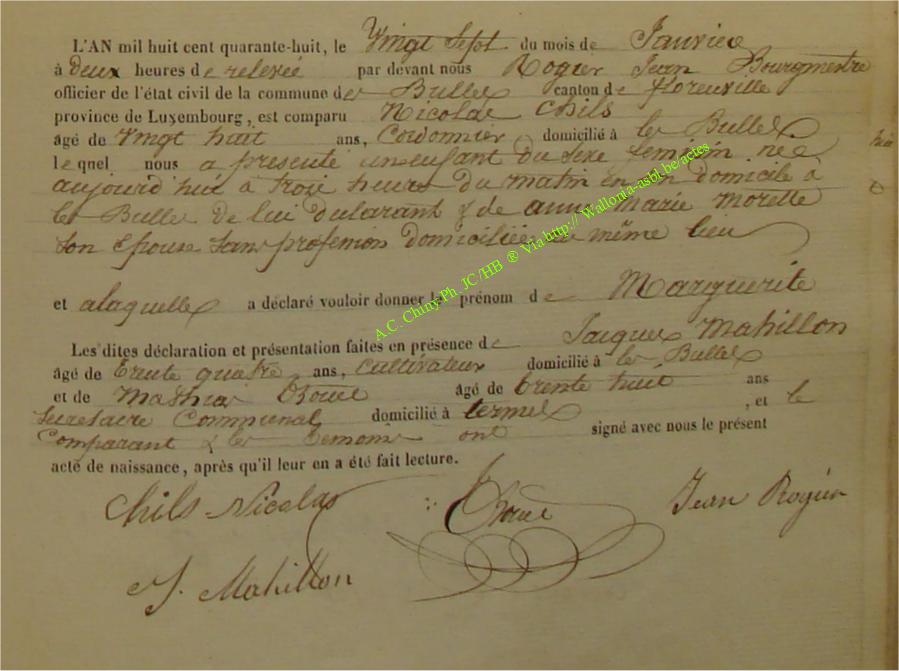 L'AN mil huit cent quarante-huit, le Vingt Sept du mois de Janvier
à deux heures de relevée par devant nous Rogier Jean Bourgmestre
officier de l'état civil de la commune de Bulles canton de florenville
province de Luxembourg, est comparu Nicolas Chils
âgé de Vingt huit ans, Cordonnier domicilié à les Bulles
lequel nous a présenté un enfant du sexe feminin née
aujourd hui à trois heures du matin en son domicile à
les Bulles de lui déclarant & de anne Marie Morette
son Epouse sans profession domiciliée au même lieu
et alaquelles a déclaré vouloir donner le prénom de Marguerite
Les dites déclaration et présentation faites en présence de Jacques Mahillon
âgé de trente quatre ans, Cultivateur domicilié à les Bulles
et de Mathias âgé de trente huit ans
Secretaire Communal domicilié à termes, et le
Comparant & les temoins ont signé avec nous le présent
acte de naissance, après qu'il leur en a été fait lecture.
Chils Nicolas Jean Rogier
J. Mahillon
A.C. Chiny Ph. JC/HB ® Via http:// Wallonia-asbl.be/actes